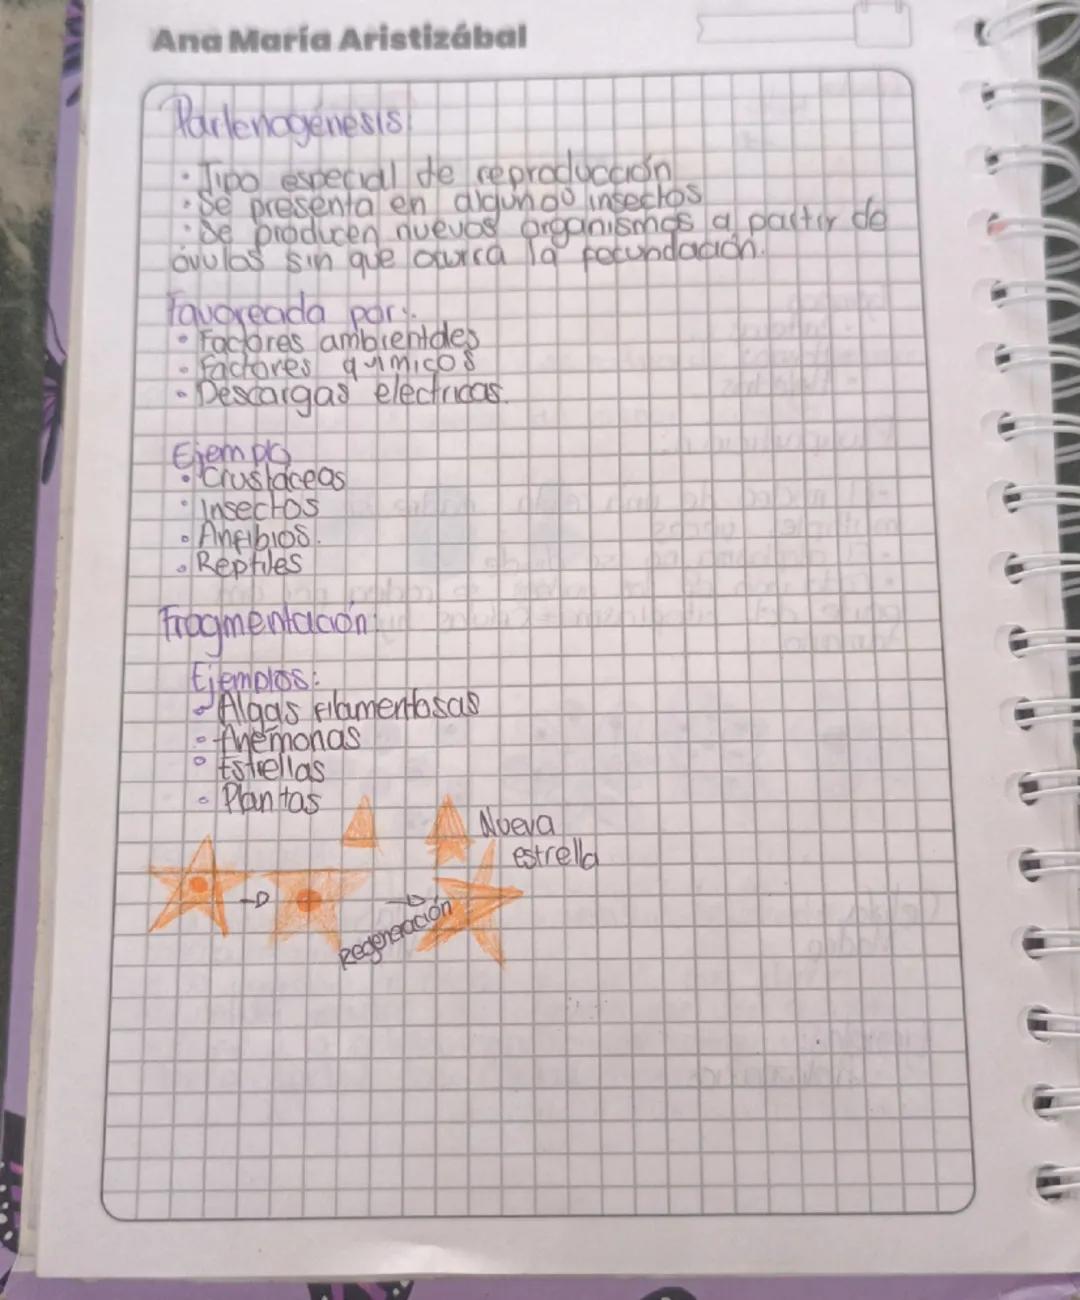 Ana María Aristizábal
Partenogénesis:
· Tipo especial de reproducción
· Se presenta en algunos insectos
· Se producen nuevos organismos a partir de
óvulos sin que ocurra la fecundación.
Favorecida por:
· Factores ambientales
· Factores químicos
· Descargas electricas.
Ejemplo
· Crustáceos
· Insectos
· Anfibios.
· Reptiles
Fragmentación:
Ejemplos:
· Algas filamentosas
· Anémonas
· Estrellas
· Plantas
Nueva
estrella
Regeneración